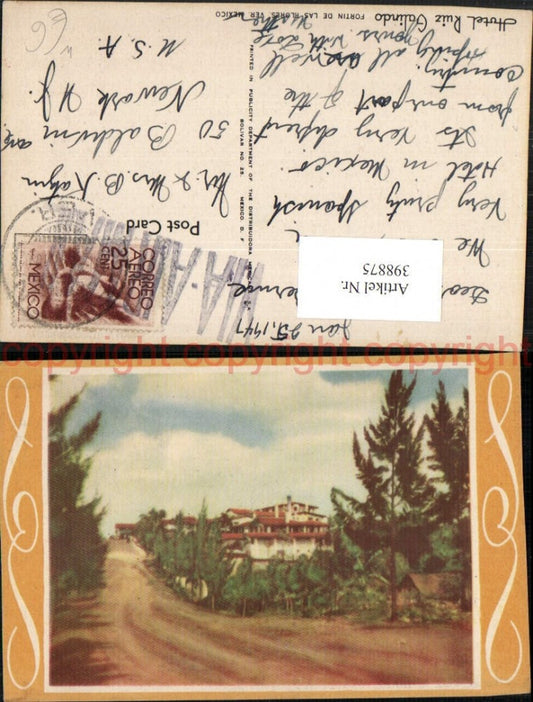 Hotel Ruiz Galindo FORTIN DE LAS FLORES VER MEXICO
Jan 25, 1947
We
Very pretty Spanish
Hotel in Mexico
Its Very
from our part of the
Country.
all are well
Yours with Love
PRINTED IN PUBLICITY DEPARTMENT OF THE DISTRIBUIDORA
BOLIVAR NO. 25. MEXICO D. F.
Post Card
VIA AIR MAIL
CORREO
AEREO
25
CENT.
MEXICO
Mr. & Mrs. B.
50 Baldwin ave
Newark N.J.
U.S.A
€6
Artikel Nr.
398875
copyright copyright copyright copyright